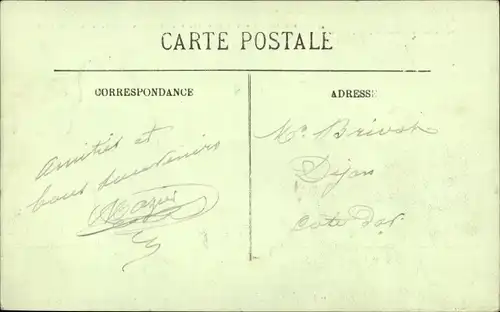 CARTE POSTALE
CORRESPONDANCE
ADRESSE
Amitiés et
bons souvenirs
Mr.
Dijon
Cote d'or